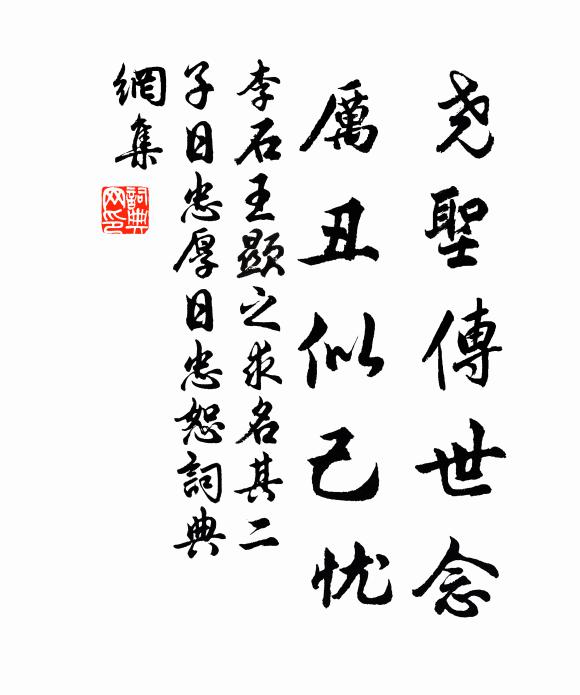 尧聖傳世念
厲丑似己忧
李石王顯之求名其二
子日忠厚日忠恕詞典
網集
詞典网印